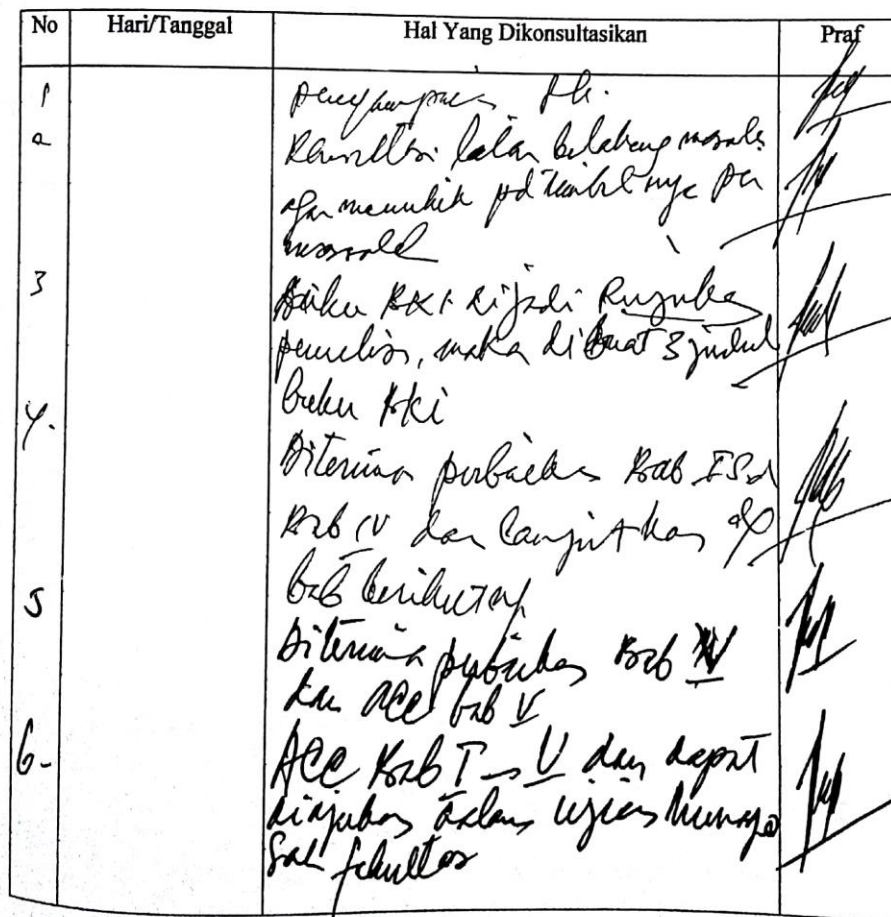 No Hari/Tanggal Hal Yang Dikonsultasikan Praf
1
2 latar belakang masalah
agar pd timbulnya
masalah
3 Buku BKI dijadi
penulisan, maka dibuat 3 judul
buku BKI
4. Diterima perbaikan Bab I Sd
Bab IV dan lanjutkan
5 bab berikutny
Diterima perbaikan Bab IV
dan ACC bab V
6- ACC Bab I - V dan dapat
diajukan dalam ujian munaqa
sah fakultas